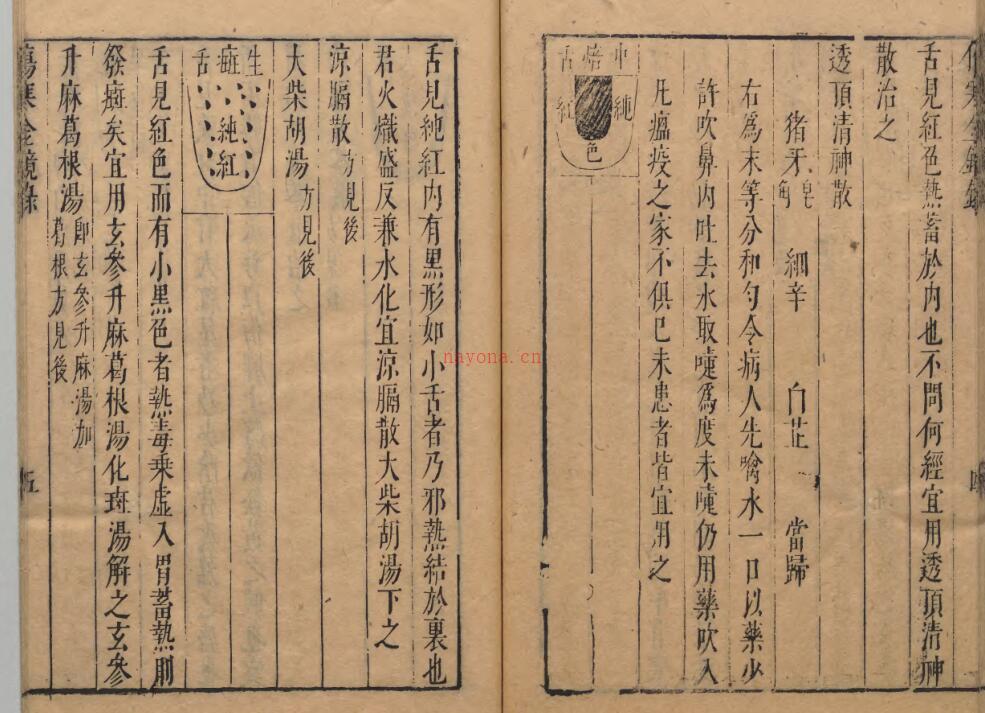 舌見紅色熱蓄於內也不問何經宜用透頂清神
散治之
透頂清神散
猪牙皂角 細辛 白芷 當歸
右爲末等分和勻令病人先噙水一口以藥少
許吹鼻內吐去水取嚏爲度未嚏仍用藥吹入
凡瘟疫之家不俱已未患者皆宜用之
中焙舌
純紅
色
舌見純紅內有黑形如小舌者乃邪熱結於裏也
君火熾盛反兼水化宜涼膈散大柴胡湯下之
涼膈散方見後
大柴胡湯方見後
生瘢舌
純紅
舌見紅色而有小黑色者熱毒乘虛入胃蓄熱則
發瘢矣宜用玄參升麻葛根湯化斑湯解之玄參
升麻葛根湯卽玄參升麻湯加
葛根方見後
傷寒全鏡錄
五
nayona.cn